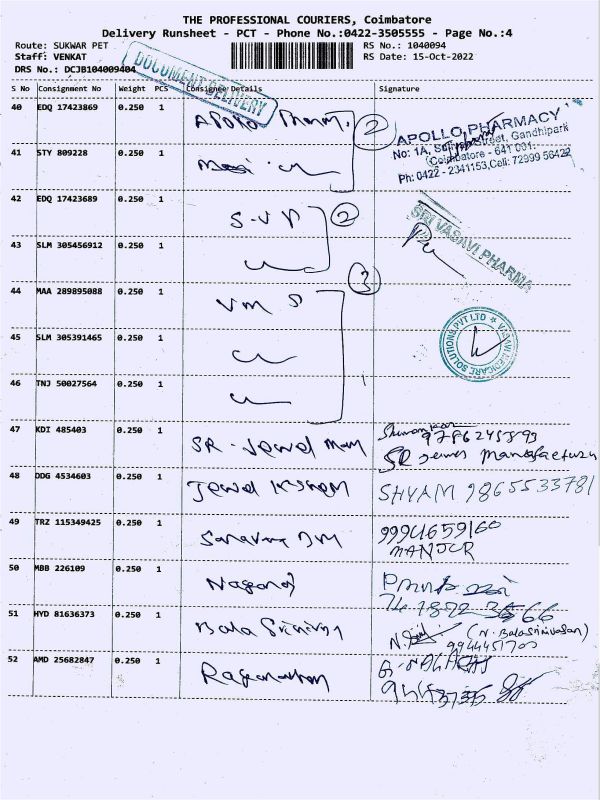 THE PROFESSIONAL COURIERS, Coimbatore
Delivery Runsheet - PCT - Phone No.:0422-3505555 - Page No.:4
Route: SUKWAR PET
RS No.: 1040094
Staff: VENKAT
RS Date: 15-Oct-2022
DRS No.: DCJB104009404
DOCUMENT DELIVERY
S No Consignment No Weight PCS Consignee Details Signature
40 EDQ 17423869 0.250 1 Apollo Pharm. 2
APOLLO PHARMACY
No: 1A, Street, Gandhipark
Coimbatore - 641 001.
Ph: 0422 - 2341153, Cell: 72999 56422
41 STY 809228 0.250 1
42 EDQ 17423689 0.250 1 S-V P 2
SRI VASAVI PHARMA
43 SLM 305456912 0.250 1
3
44 MAA 289895088 0.250 1 VM S
VASAVI MEDICARE SOLUTIONS PVT LTD
45 SLM 305391465 0.250 1
46 TNJ 50027564 0.250 1
47 KDI 485403 0.250 1 SR - Jewel
9786245893
SR Jewel Manufacture
48 DDG 4534603 0.250 1 Jewel SHYAM 9865533781
49 TRZ 115349425 0.250 1 9994659160
50 MBB 226109 0.250 1 Nagaraj
51 HYD 81636373 0.250 1 Bala Srinivas (N. Balasrinivasan)
9944451700
52 AMD 25682847 0.250 1